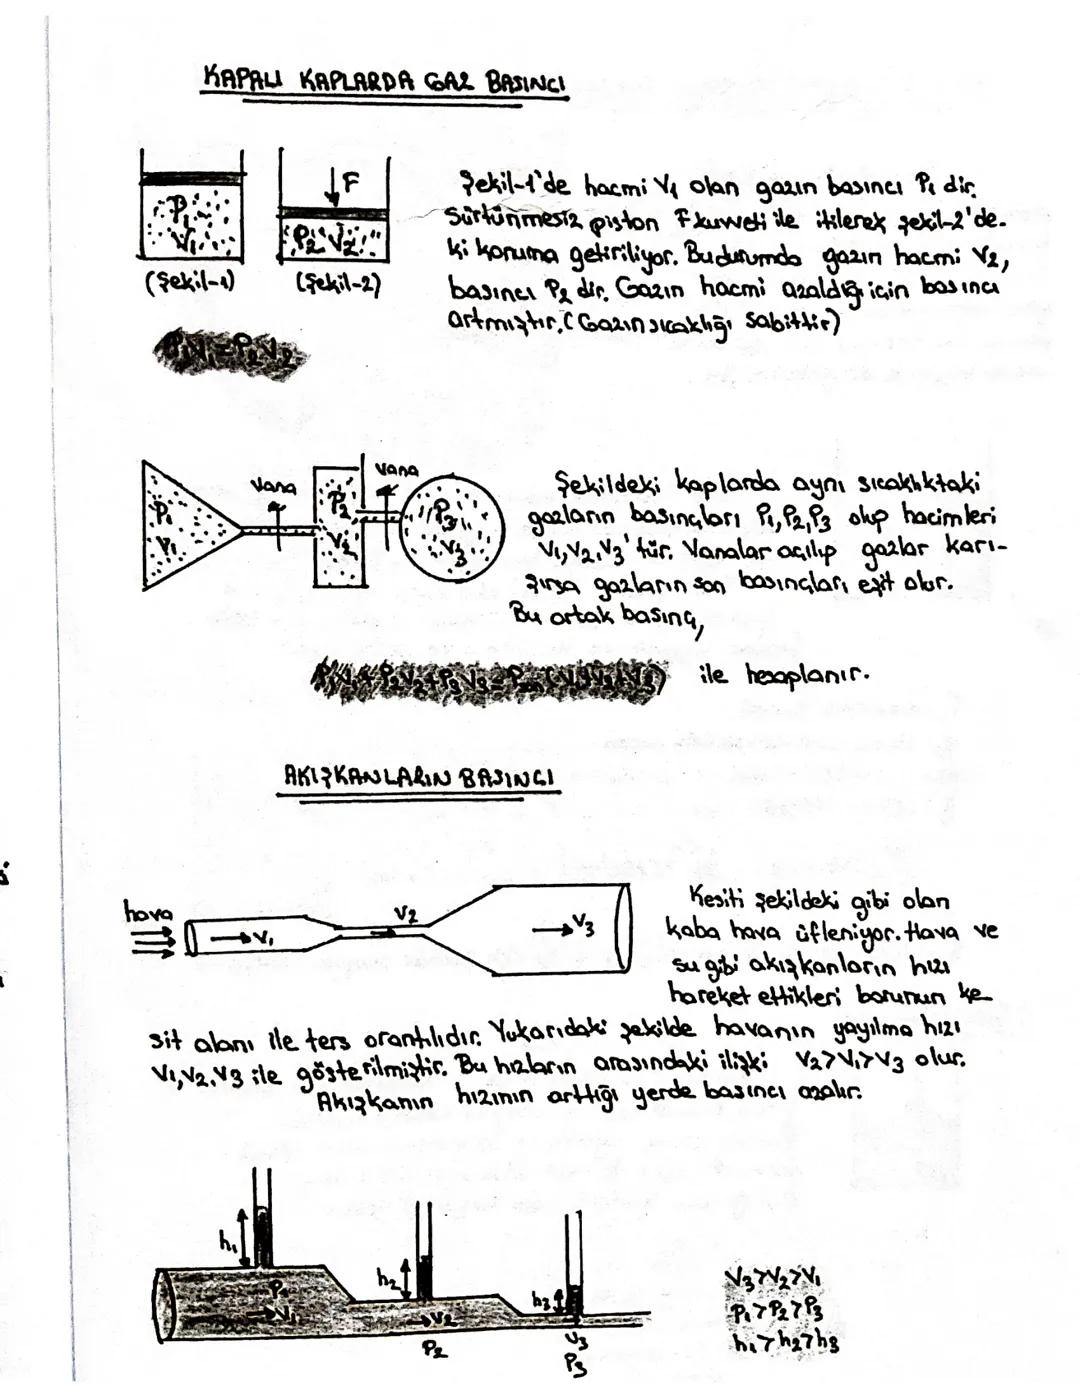 KAPALI KAPLARDA GAZ BASINCI
P₁
V₁
(Şekil-1)
F
P₂ V₂
(Şekil-2)
Şekil-1'de hacmi V₁ olan gazın basıncı P₁ dir.
Sürtünmesiz piston F kuvveti ile itilerek şekil-2'de-
ki konuma getiriliyor. Bu durumda gazın hacmi V₂,
basıncı P₂ dir. Gazın hacmi azaldığı için basıncı
artmıştır. (Gazın sıcaklığı sabittir)
P₁V₁=P₂V₂
P₁
V₁
Vana
P₂
V₂
Vana
P₃
V₃
Şekildeki kaplarda aynı sıcaklıktaki
gazların basınçları P₁,P₂,P₃ olup hacimleri
V₁,V₂,V₃'tür. Vanalar açılıp gazlar karı-
şırsa gazların son basınçları eşit olur.
Bu ortak basınç,
P₁V₁+P₂V₂+P₃V₃=P (V₁+V₂+V₃) ile hesaplanır.
AKIŞKANLARIN BASINCI
hava
V₁
V₂
V₃
Kesiti şekildeki gibi olan
kaba hava üfleniyor. Hava ve
su gibi akışkanların hızı
hareket ettikleri borunun ke
sit alanı ile ters orantılıdır. Yukarıdaki şekilde havanın yayılma hızı
V₁,V₂,V₃ ile gösterilmiştir. Bu hızların arasındaki ilişki V₂>V₁>V₃ olur.
Akışkanın hızının arttığı yerde basıncı azalır.
h₁
P₁
V₁
h₂
V₂
P₂
h₃
V₃
P₃
V₃>V₂>V₁
P₁>P₂>P₃
h₁>h₂>h₃